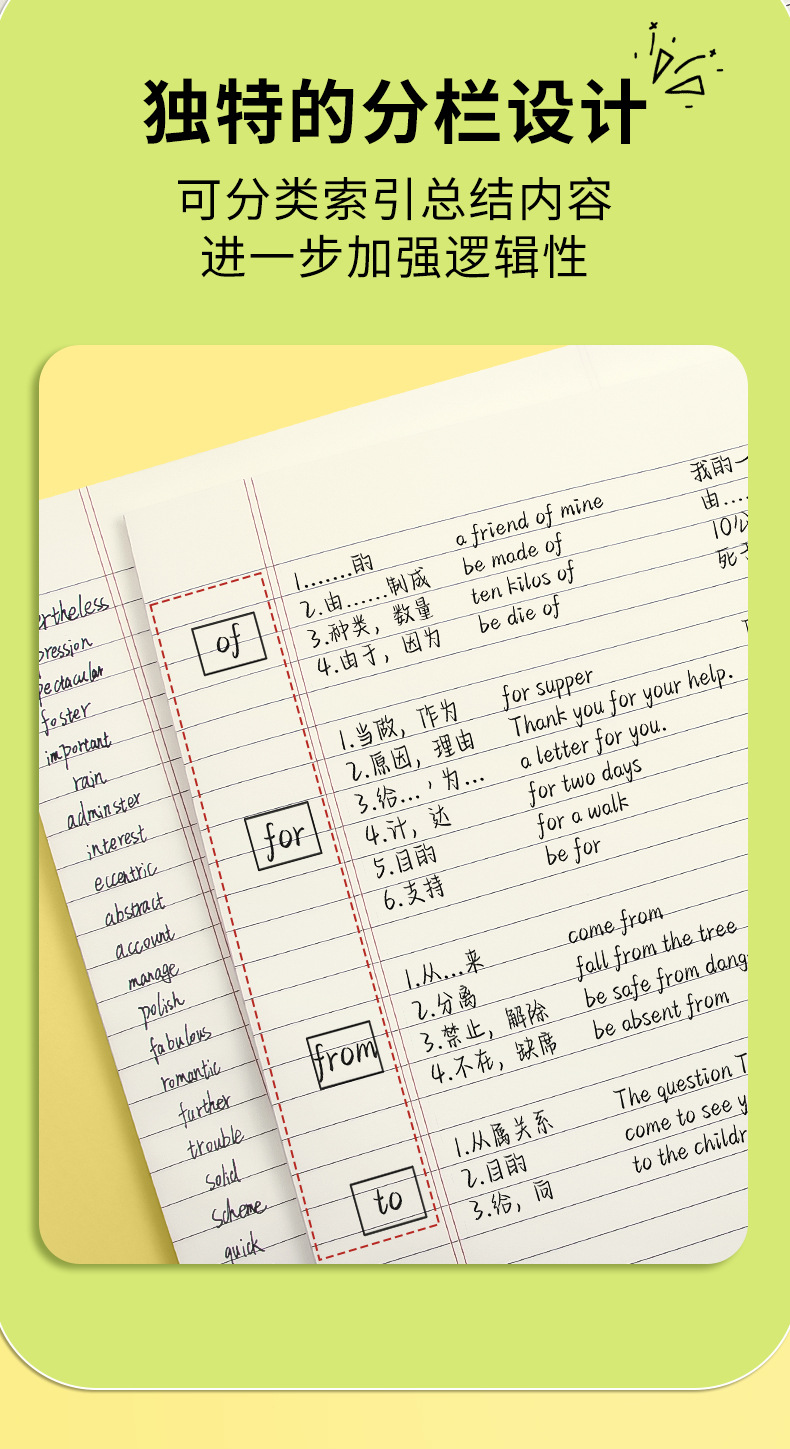 独特的分栏设计
可分类索引总结内容
进一步加强逻辑性
of
1.......的 a friend of mine 我的一
2.由......制成 be made of 由....
3.种类，数量 ten kilos of 10公
4.由于，因为 be die of 死于
for
1.当做，作为 for supper
2.原因，理由 Thank you for your help.
3.给...，为... a letter for you.
4.计，达 for two days
5.目的 for a walk
6.支持 be for
from
1.从...来 come from
2.分离 fall from the tree
3.禁止，解除 be safe from dang
4.不在，缺席 be absent from
to
1.从属关系 The question T
2.目的 come to see y
3.给，向 to the childr
ertheless
pression
pectacular
foster
important
rain
adminster
interest
eccentric
abstract
account
manage
polish
fabulous
romantic
further
trouble
solid
scheme
quick